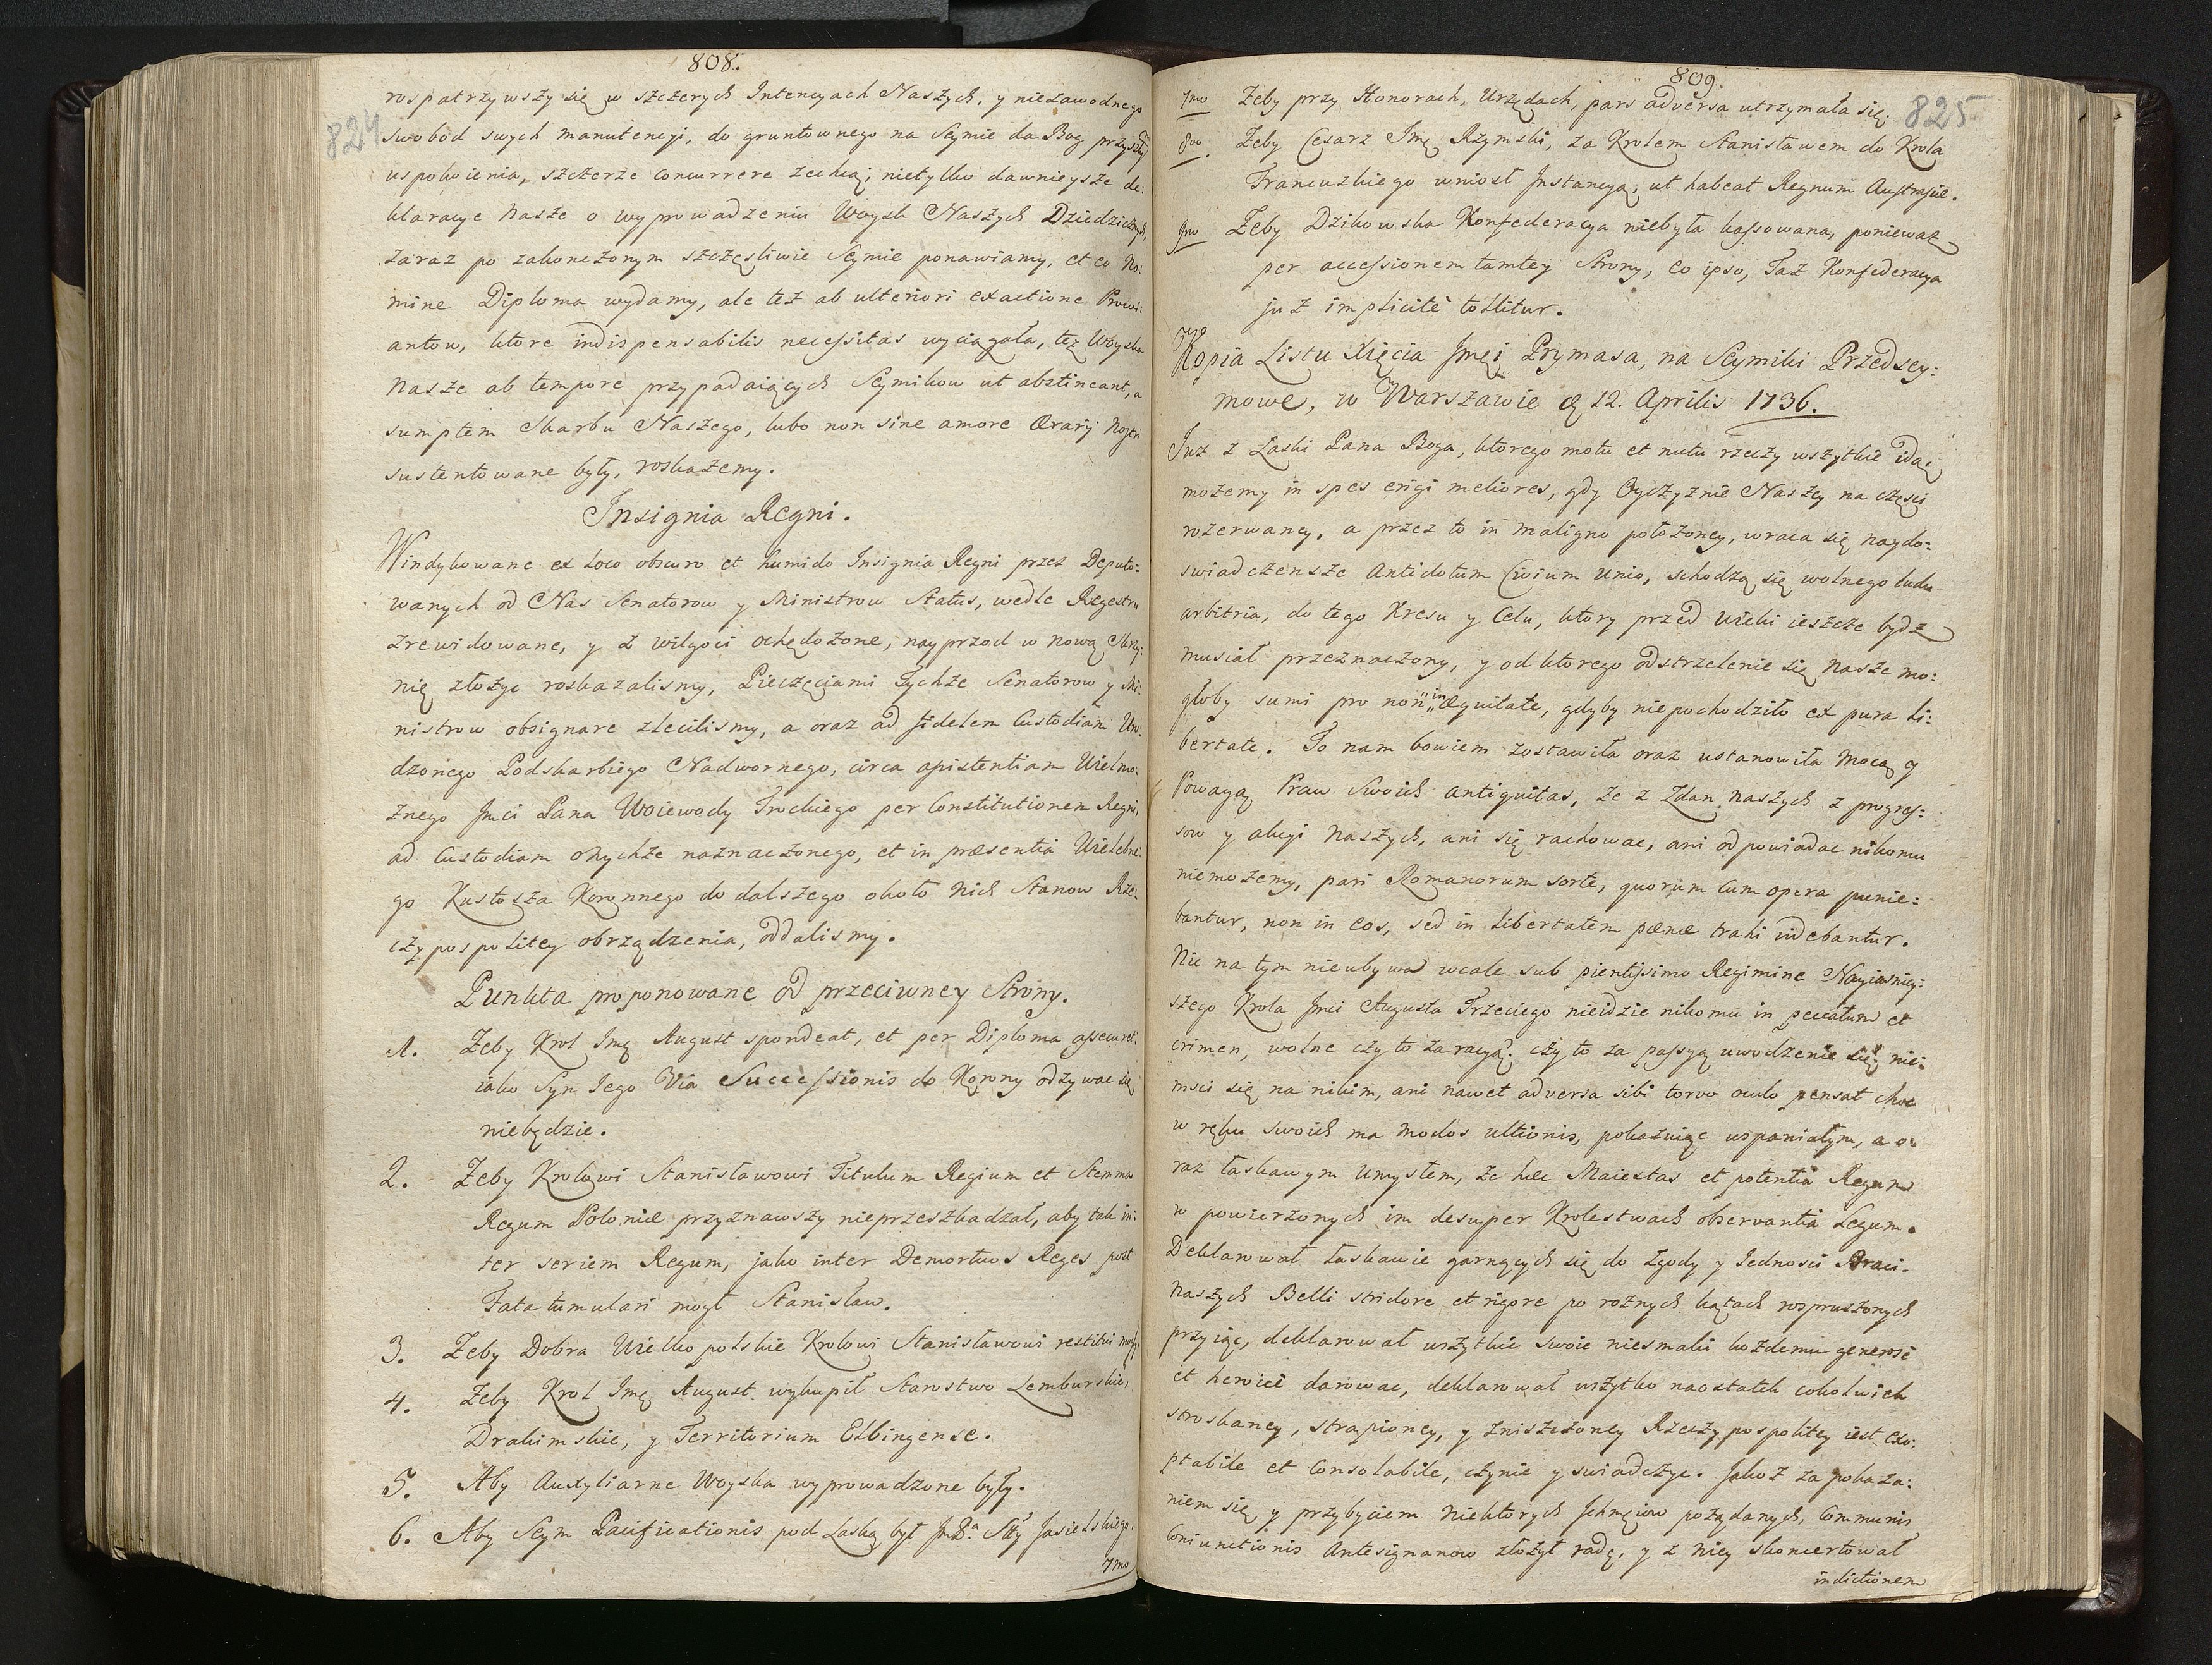 808.
824
rospatrzywszy się w szczerych Intencyach Naszych, y niezawodnego
swobod swych manutencyi, do gruntownego na Seymie da Bog przyszłym
uspokoienia, szczerze concurrere zechcą; nietylko dawnieysze de:
klaracye nasze o wyprowadzeniu Woysk Naszych Dziedzicznych,
zaraz po zakonczonym szczęsliwie Seymie ponawiamy, et eo No:
mine Diploma wydamy, ale też ab ulteriori exactione Prowi:
antow, ktore indispensabilis necessitas wyciągała, też Woyska
Nasze ab tempore przypadaiących Seymikow ut abstineant, a
sumptem Skarbu Naszego, lubo non sine amore Ærarij Nostri
sustentowane były, roskażemy.
Insignia Regni.
Windykowane ex loco obscuro et humido Insignia Regni przez Deputo:
wanych od Nas Senatorow y Ministrow Status, wedle Regestru
zrewidowane, y z wilgoci ochędożone, nayprzod w nową Skrzy:
nię złożyc roskazalismy, Pieczęciami Tychże Senatorow y Mi:
nistrow obsignare zlecilismy, a oraz ad fidelem Custodiam Uro:
dzonego Podskarbiego Nadwornego, circa assistentiam Wielmo:
żnego Jmci Pana Woiewody Trockiego per Constitutionem Regni,
ad Custodiam onychże naznaczonego, et in præsentia Wielebne:
go Kustosza Koronnego do dalszego około nich Stanow Rze:
czypospolitey obrządzenia, oddalismy.
Punkta proponowane od przeciwney Strony.
1. Zeby Krol Jmę August spondeat, et per Diploma assecuret.
iako Syn Iego Via Successionis do Korony odzywac się
niebędzie.
2. Zeby Krolowi Stanisławowi Titulum Regium et Stemma
Regum Poloniæ przyznawszy nieprzeszkadzał, aby tak in:
ter seriem Regum, jako inter Demortuos Reges post
Fata tumulari mogł Stanisław.
3. Zeby Dobra Wielkopolskie Krolowi Stanisławowi restitui mogły
4. Zeby Krol Jmę August wykupił Starostwo Lemburskie,
Drahimskie, y Territorium Elbingense.
5. Aby Auxyliarne Woyska wyprowadzone były.
6. Aby Seym Pacificationis pod Laską był JmP.ª Stty Jasielskiego.
7mo
809.
825
7mo Zeby przy Honorach, Urzędach, pars adversa utrzymała się.
8vo. Zeby Cesarz Jmę Rzymski, za Krolem Stanisławem do Krola
Francuzkiego wniosł Instancyą, ut habeat Regnum Austrasiæ.
9no Zeby Dzikowska Konfederacya niebyła kassowana, ponieważ
per accessionem tamtey Strony, eo ipso, Taż Konfederacya
już implicitè tollitur.
Kopia Listu Xięcia Jmęi Prymasa, na Seymiki Przedsey:
mowe, w Warszawie d 12. Aprilis 1736.
Juz z Łaski Pana Boga, ktorego motu et nutu rzeczy wszytkie idą,
możemy in spes erigi meliores, gdy Oyczyznie Naszey na części
rozerwaney, a przez to in maligno położoney, wraca się naydo:
swiadczensze Antidotum Civium Unio, schodzą się wolnego ludu
arbitria, do tego Kresu y Celu, ktory przed wieki ieszcze bydz
musiał przeznaczony, y od ktorego odstrzelenie się nasze mo:
głoby sumi pro non in æquitate, gdyby niepochodziło ex pura li:
bertate. To nam bowiem zostawiła oraz ustanowiła Mocą y
Powagą Praw Swoich antiquitas, że z Zdan naszych z progres:
sow y akcyi naszych, ani się rachowac, ani odpowiadac nikomu
niemożemy, pari Romanorum sorte, quorum cum opera punie:
bantur, non in eos, sed in libertatem pænæ trahi videbantur.
Nic na tym nieubywa wcale sub pientissimo Regimine Nayiasniey:
szego Krola Jmci Augusta Trzeciego nieidzie nikomu in peccatum et
crimen, wolne czy to za racyą. czy to za passyą uwodzenie się, nie:
msci się na nikim, ani nawet adversa sibi torvo oculo pensat choc
w ręku swoich ma modos ultionis, pokazuiąc wspaniałym, a o:
raz łaskawym Umysłem, że hæc Maiestas et potentia Regum
w powierzonych im desuper Krolestwach observantia Legum.
Deklarował łaskawie garnących się do Zgody y Jednosci Braci
Naszych Belli stridore et rigore po rożnych kątach rospruszonych
przyiąc, deklarował wszytkie swoie niesmaki każdemu generosè
et heroicè darowac, deklarował wszytko naostatek cokolwiek
stroskaney, strapioney, y zniszczoney Rzeczypospolitey iest exo:
ptabile et consolabile, czynic y swiadczyc. Jakoż za pokaza:
niem się y przybyciem niektorych Jchmęiow pożądanych, Communis
Coniunctionis Antesignanow złożył radę, y z niey skoncertował
indictionem